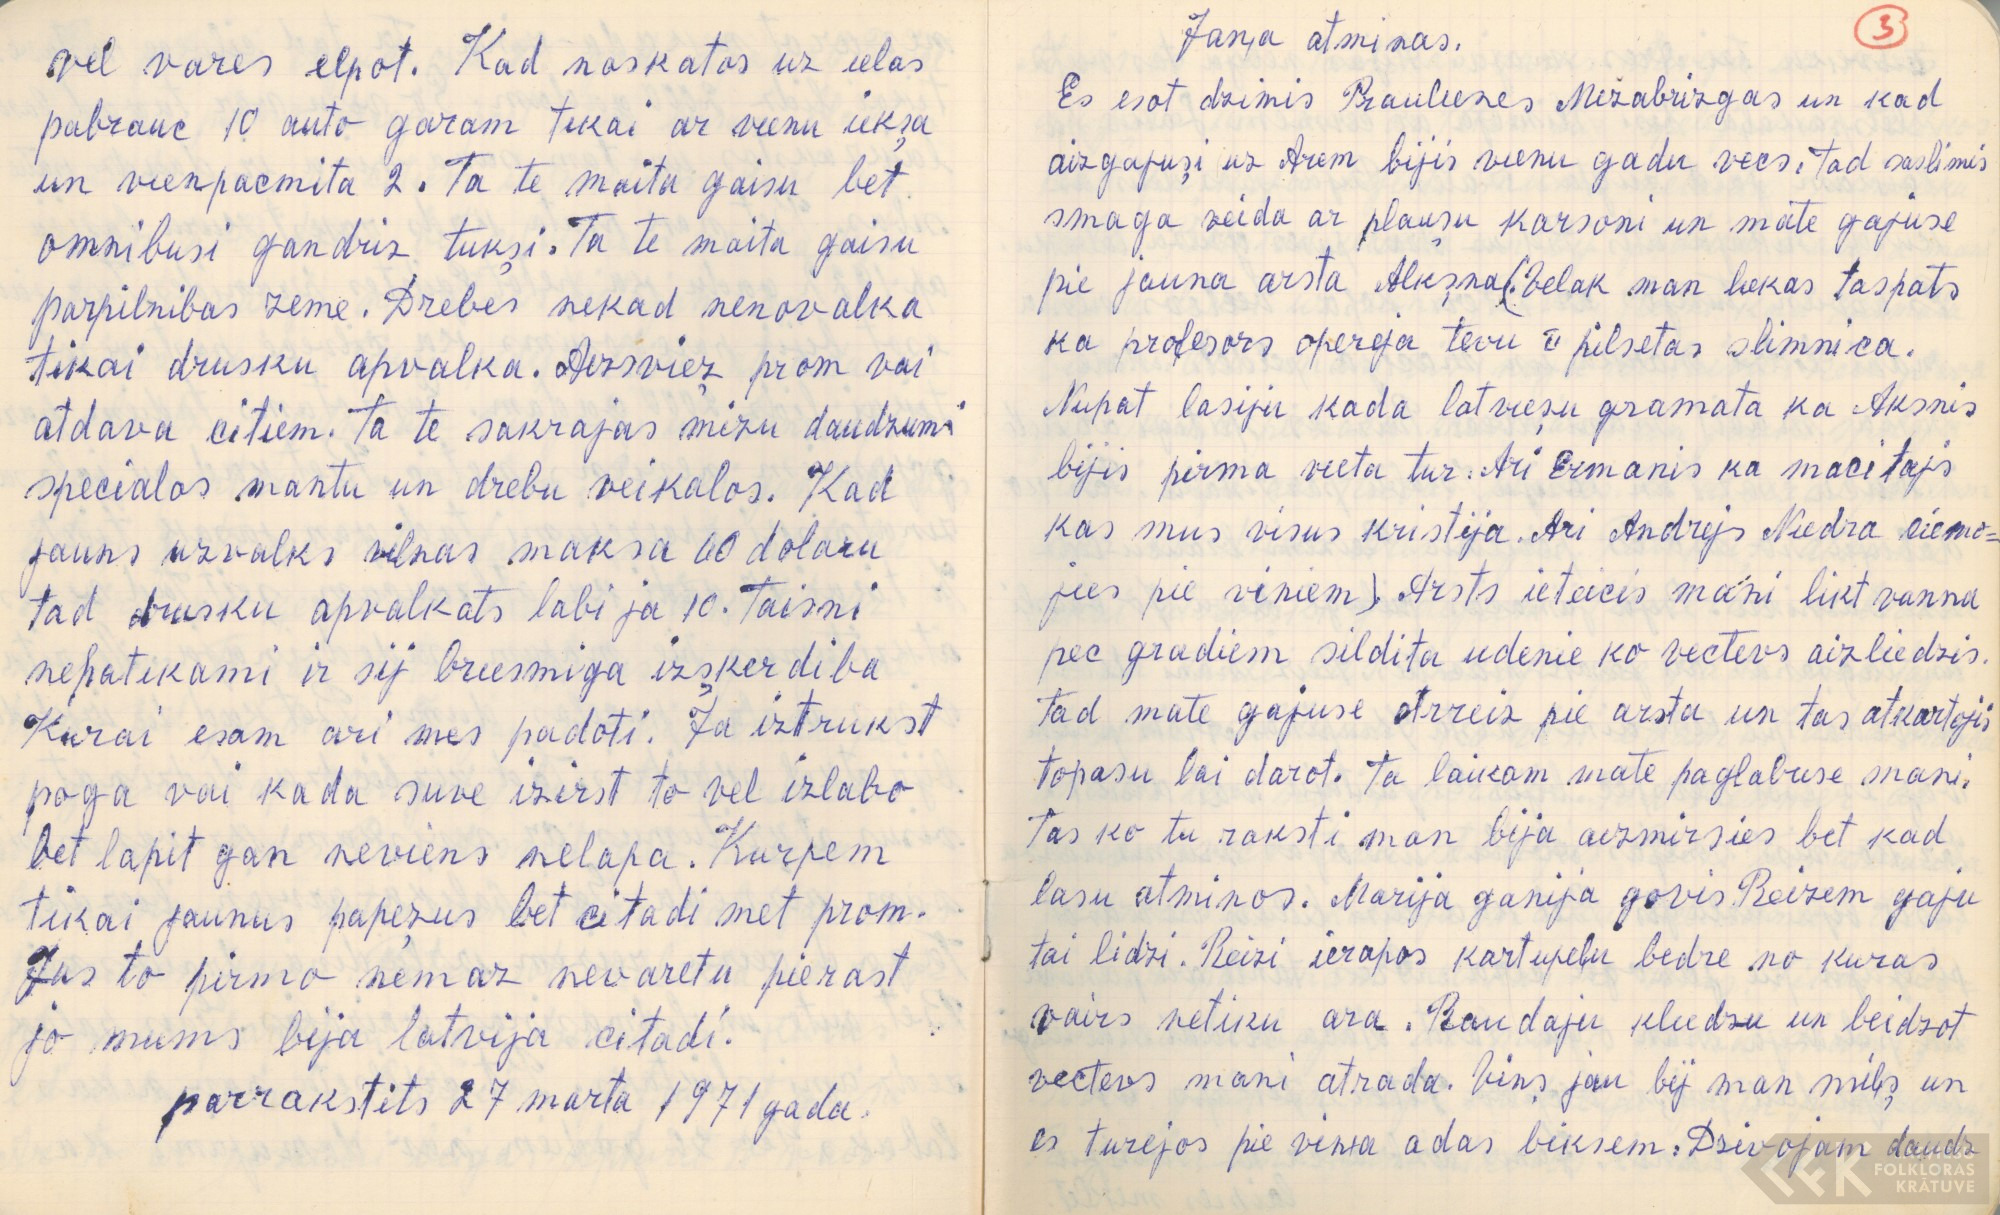 vel vares elpot. Kad noskatos uz ielas
pabrauc 10 auto garam tikai ar vienu iekşa
un vienpacmita 2. Ta te maita gaisu bet
omnibusi gandriz tukşi. Ta te maita gaisu
parpilnibas zeme. Drebes nekad nenovalka
tikai drusku apvalka. Aizsviež prom vai
atdava citiem. Ta te sakrajas mizu daudzumi
specialos mantu un drebu veikalos. Kad
jauns uzvalks vilnas maksa 60 dolaru
tad drusku apvalkats labi ja 10. Taisni
nepatikami ir sij briesmiga izşkerdiba
Kurai esam ari mes padoti. Ja iztrukst
poga vai kada suve izirst to vel izlabo
bet lapit gan neviens nelapa. Kurpem
tikai jaunus papezus bet citadi met prom.
Jus to pirmo nemaz nevaretu pierast
jo mums bija latvija citadi.
parrakstits 27 marta 1971 gada.
3
Jaņa atminas.
Es esot dzimis Praulienes Mežabrizgas un kad
aizgajuşi uz Arem bijis vienu gadu vecs. Tad saslimis
smaga veida ar plauşu karsoni un mate gajuse
pie jauna arsta Alkşna (Velak man liekas taspats
ka profesors operēja tevu II pilsetas slimnica.
Nupat lasiju kada latvieşu gramata ka Aksnis
bijis pirma vieta tur. Ari Ermanis ka macitajs
kas mus visus kristija. Ari Andrejs Niedra ciemo=
jies pie viniem). Arsts ieteicis mani likt vanna
pec gradiem sildita udenie ko vectevs aizliedzis.
tad mate gajuse otrreiz pie arsta un tas atkartojis
topaşu lai darot. Ta laikam mate paglabuse mani.
Tas ko tu raksti man bija aizmirsies bet kad
lasu atminos. Marija ganija govis Reizem gaju
tai lidzi. Reizi ierapos kartupelu bedre no kuras
vairs netiku ara. Raudaju kliedzu un beidzot
vectevs mani atrada. Vinş jau bij man milş un
es turejos pie vinia adas biksem. Dzivojam daudz
FOLKLORAS
KRĀTUVE